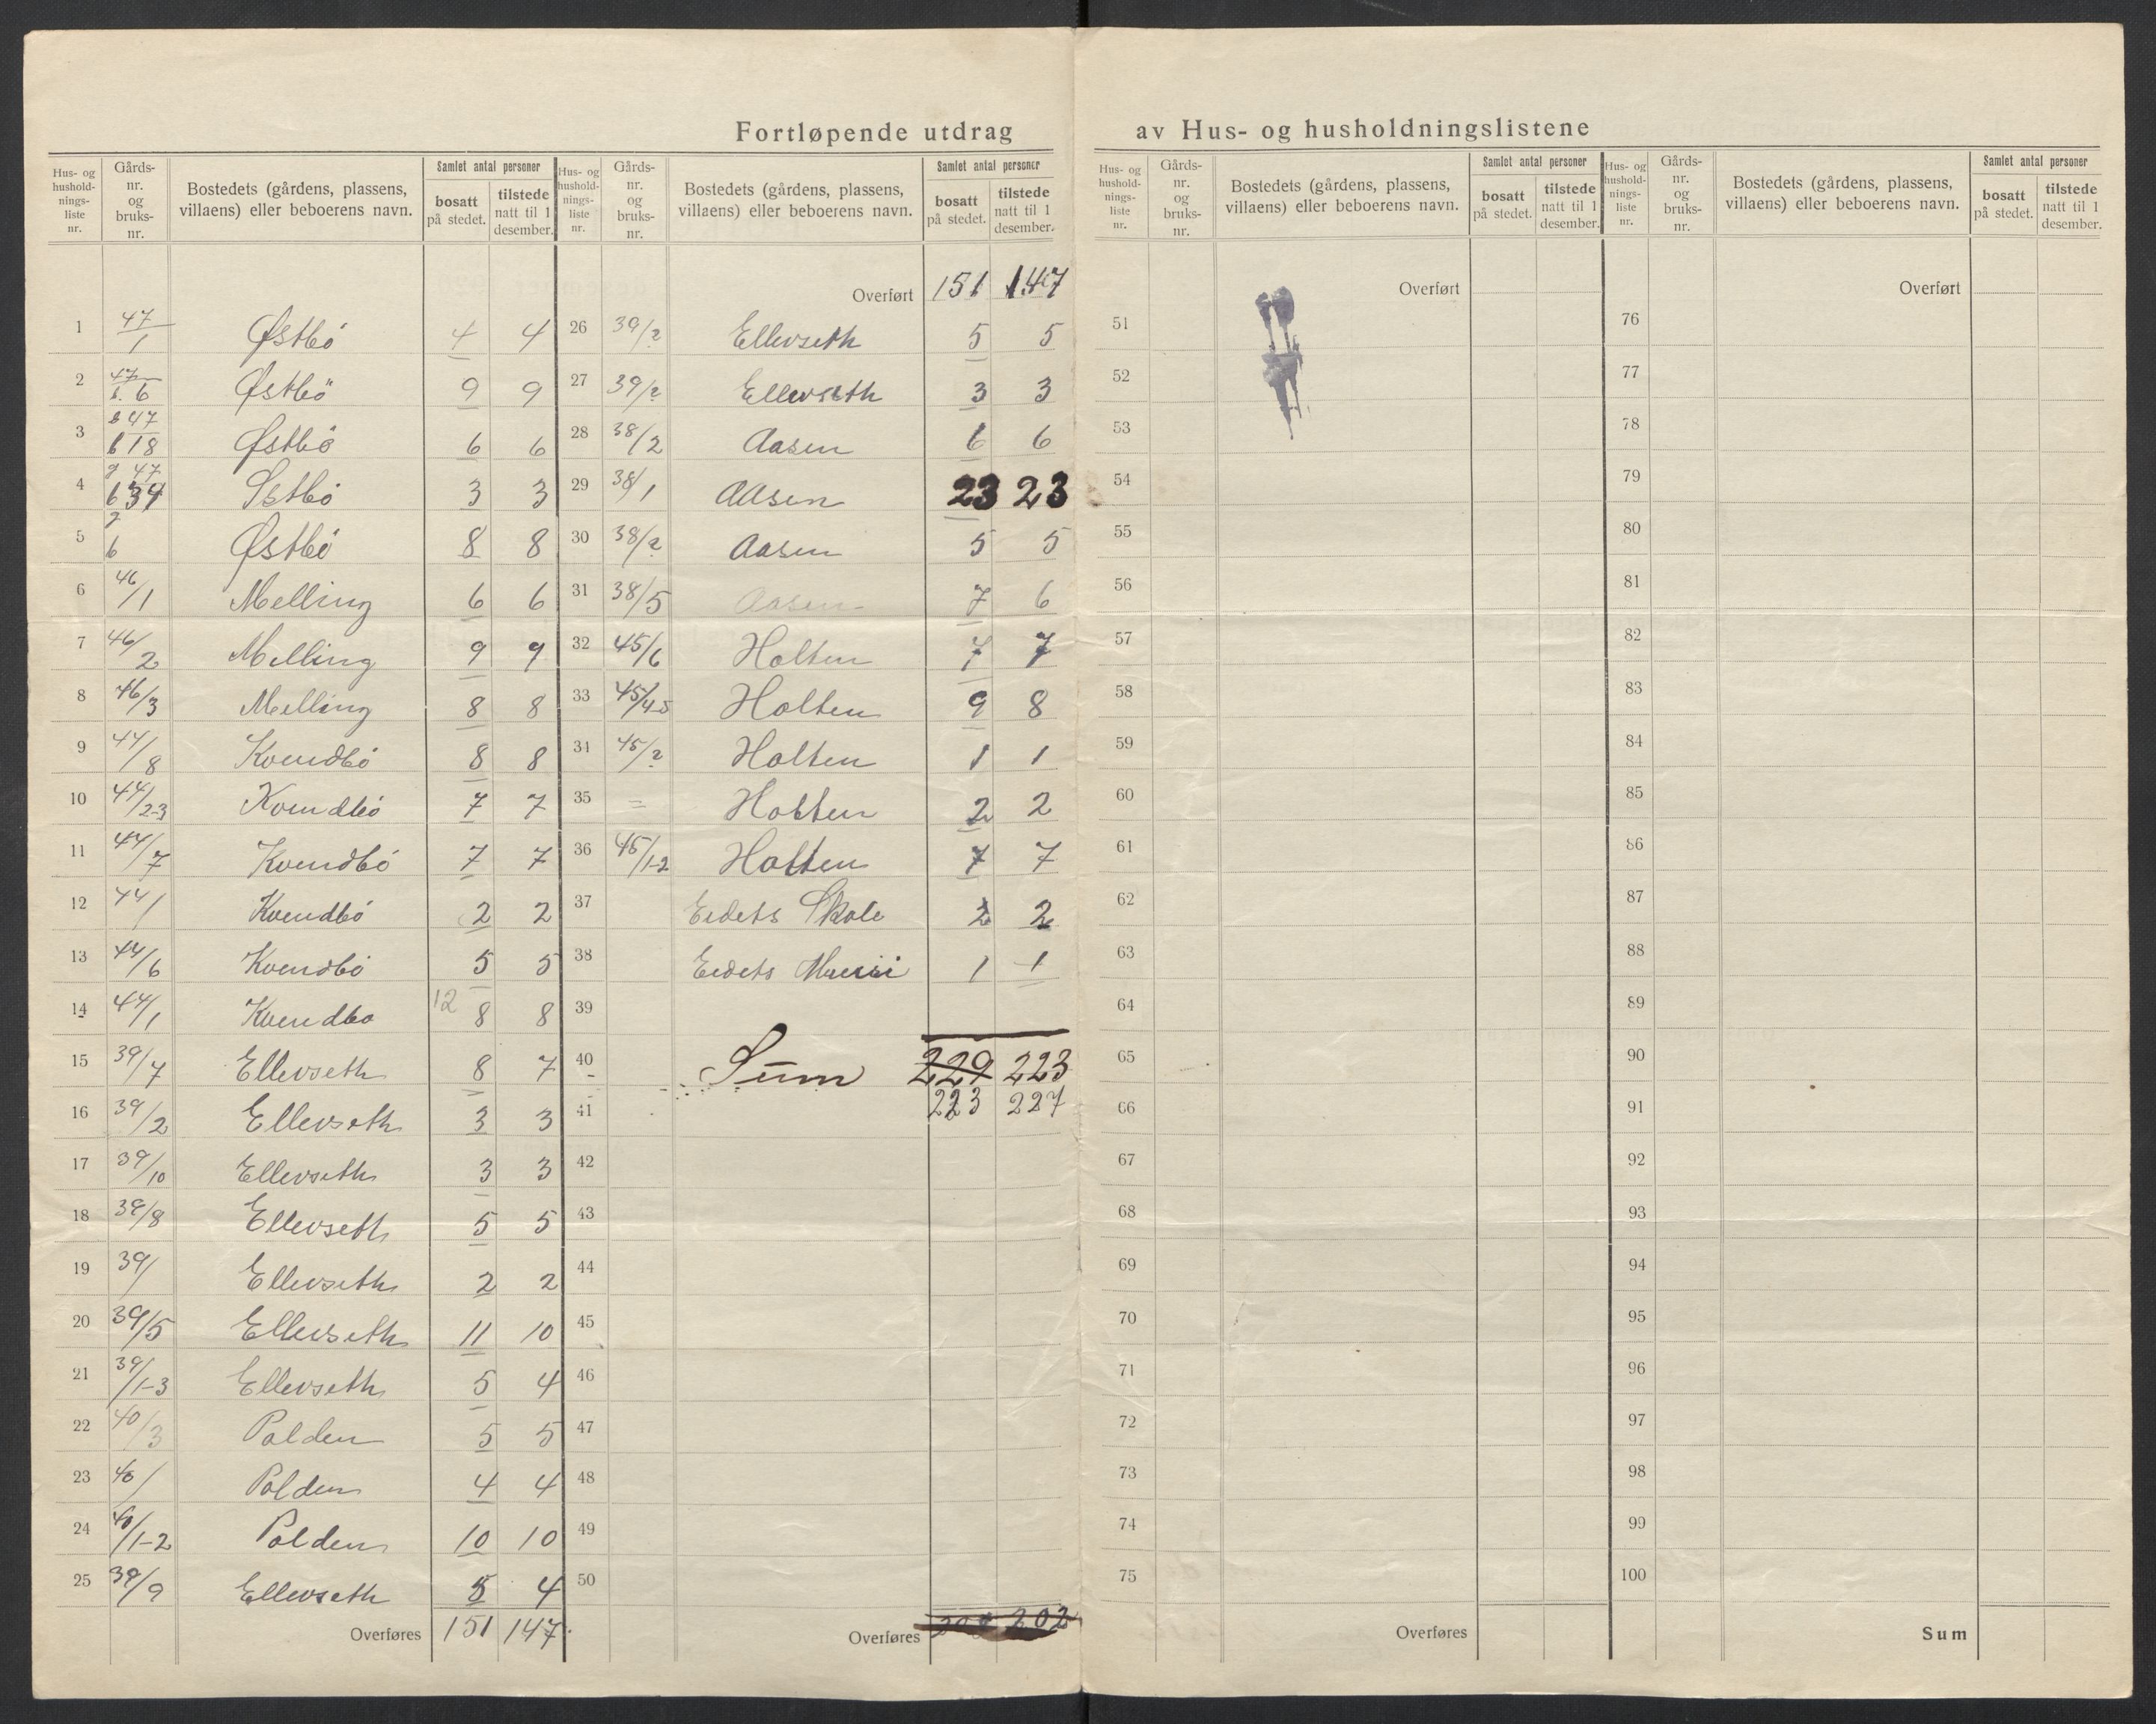 Fortløpende utdrag av Hus- og husholdningslistene
Hus- og husholdnings-liste nr. | Gårds-nr. og bruks-nr. | Bostedets (gårdens, plassens, villaens) eller beboerens navn. | Samlet antal personer: bosatt på stedet. | tilstede natt til 1 desember.
1 47/1 Østbö 4 4
2 47 b. 6 Østbö 9 9
3 47 18 Østbö 6 6
4 47 634 Østbö 3 3
5 6 Østbö 8 8
6 46/1 Melling 6 6
7 46/2 Melling 9 9
8 46/3 Melling 8 8
9 44/8 Kvendbö 8 8
10 44/2-3 Kvendbö 7 7
11 44/7 Kvendbö 7 7
12 44/ Kvendbö 2 2
13 44/6 Kvendbö 5 5
14 44/1 Kvendbo 12 8 8
15 39/7 Ellevseth 8 7
16 39/2 Ellevseth 3 3
17 39/10 Ellevseth 3 3
18 39/8 Ellevseth 5 5
19 39/ Ellevseth 2 2
20 39/5 Ellevseth 11 10
21 39/1-3 Ellevseth 5 4
22 40/3 Polden 5 5
23 40/ Polden 4 4
24 40/1-2 Polden 10 10
25 39/9 Ellevseth 5 4
Overføres 151 147
Hus- og husholdnings-liste nr. | Gårds-nr. og bruks-nr. | Bostedets (gårdens, plassens, villaens) eller beboerens navn. | Samlet antal personer: bosatt på stedet. | tilstede natt til 1 desember.
Overført 151 147
26 39/2 Ellevseth 5 5
27 39/2 Ellevseth 3 3
28 38/2 Aasen 6 6
29 38/1 Aasen 23 23
30 38/2 Aasen 5 5
31 38/5 Aasen 7 6
32 45/6 Holten 7 7
33 45/4-5 Holten 9 8
34 45/2 Holten 1 1
35 = Holten 2 2
36 45/1-2 Holten 7 7
37 Eidets Skole 2 2
38 Eidets 1 1
39
40 Sum 229 223
41 223 227
42
43
44
45
46
47
48
49
50
Overføres 202
Hus- og husholdnings-liste nr. | Gårds-nr. og bruks-nr. | Bostedets (gårdens, plassens, villaens) eller beboerens navn. | Samlet antal personer: bosatt på stedet. | tilstede natt til 1 desember.
Overført
51
52
53
54
55
56
57
58
59
60
61
62
63
64
65
66
67
68
69
70
71
72
73
74
75
Overføres
Hus- og husholdnings-liste nr. | Gårds-nr. og bruks-nr. | Bostedets (gårdens, plassens, villaens) eller beboerens navn. | Samlet antal personer: bosatt på stedet. | tilstede natt til 1 desember.
Overført
76
77
78
79
80
81
82
83
84
85
86
87
88
89
90
91
92
93
94
95
96
97
98
99
100
Sum